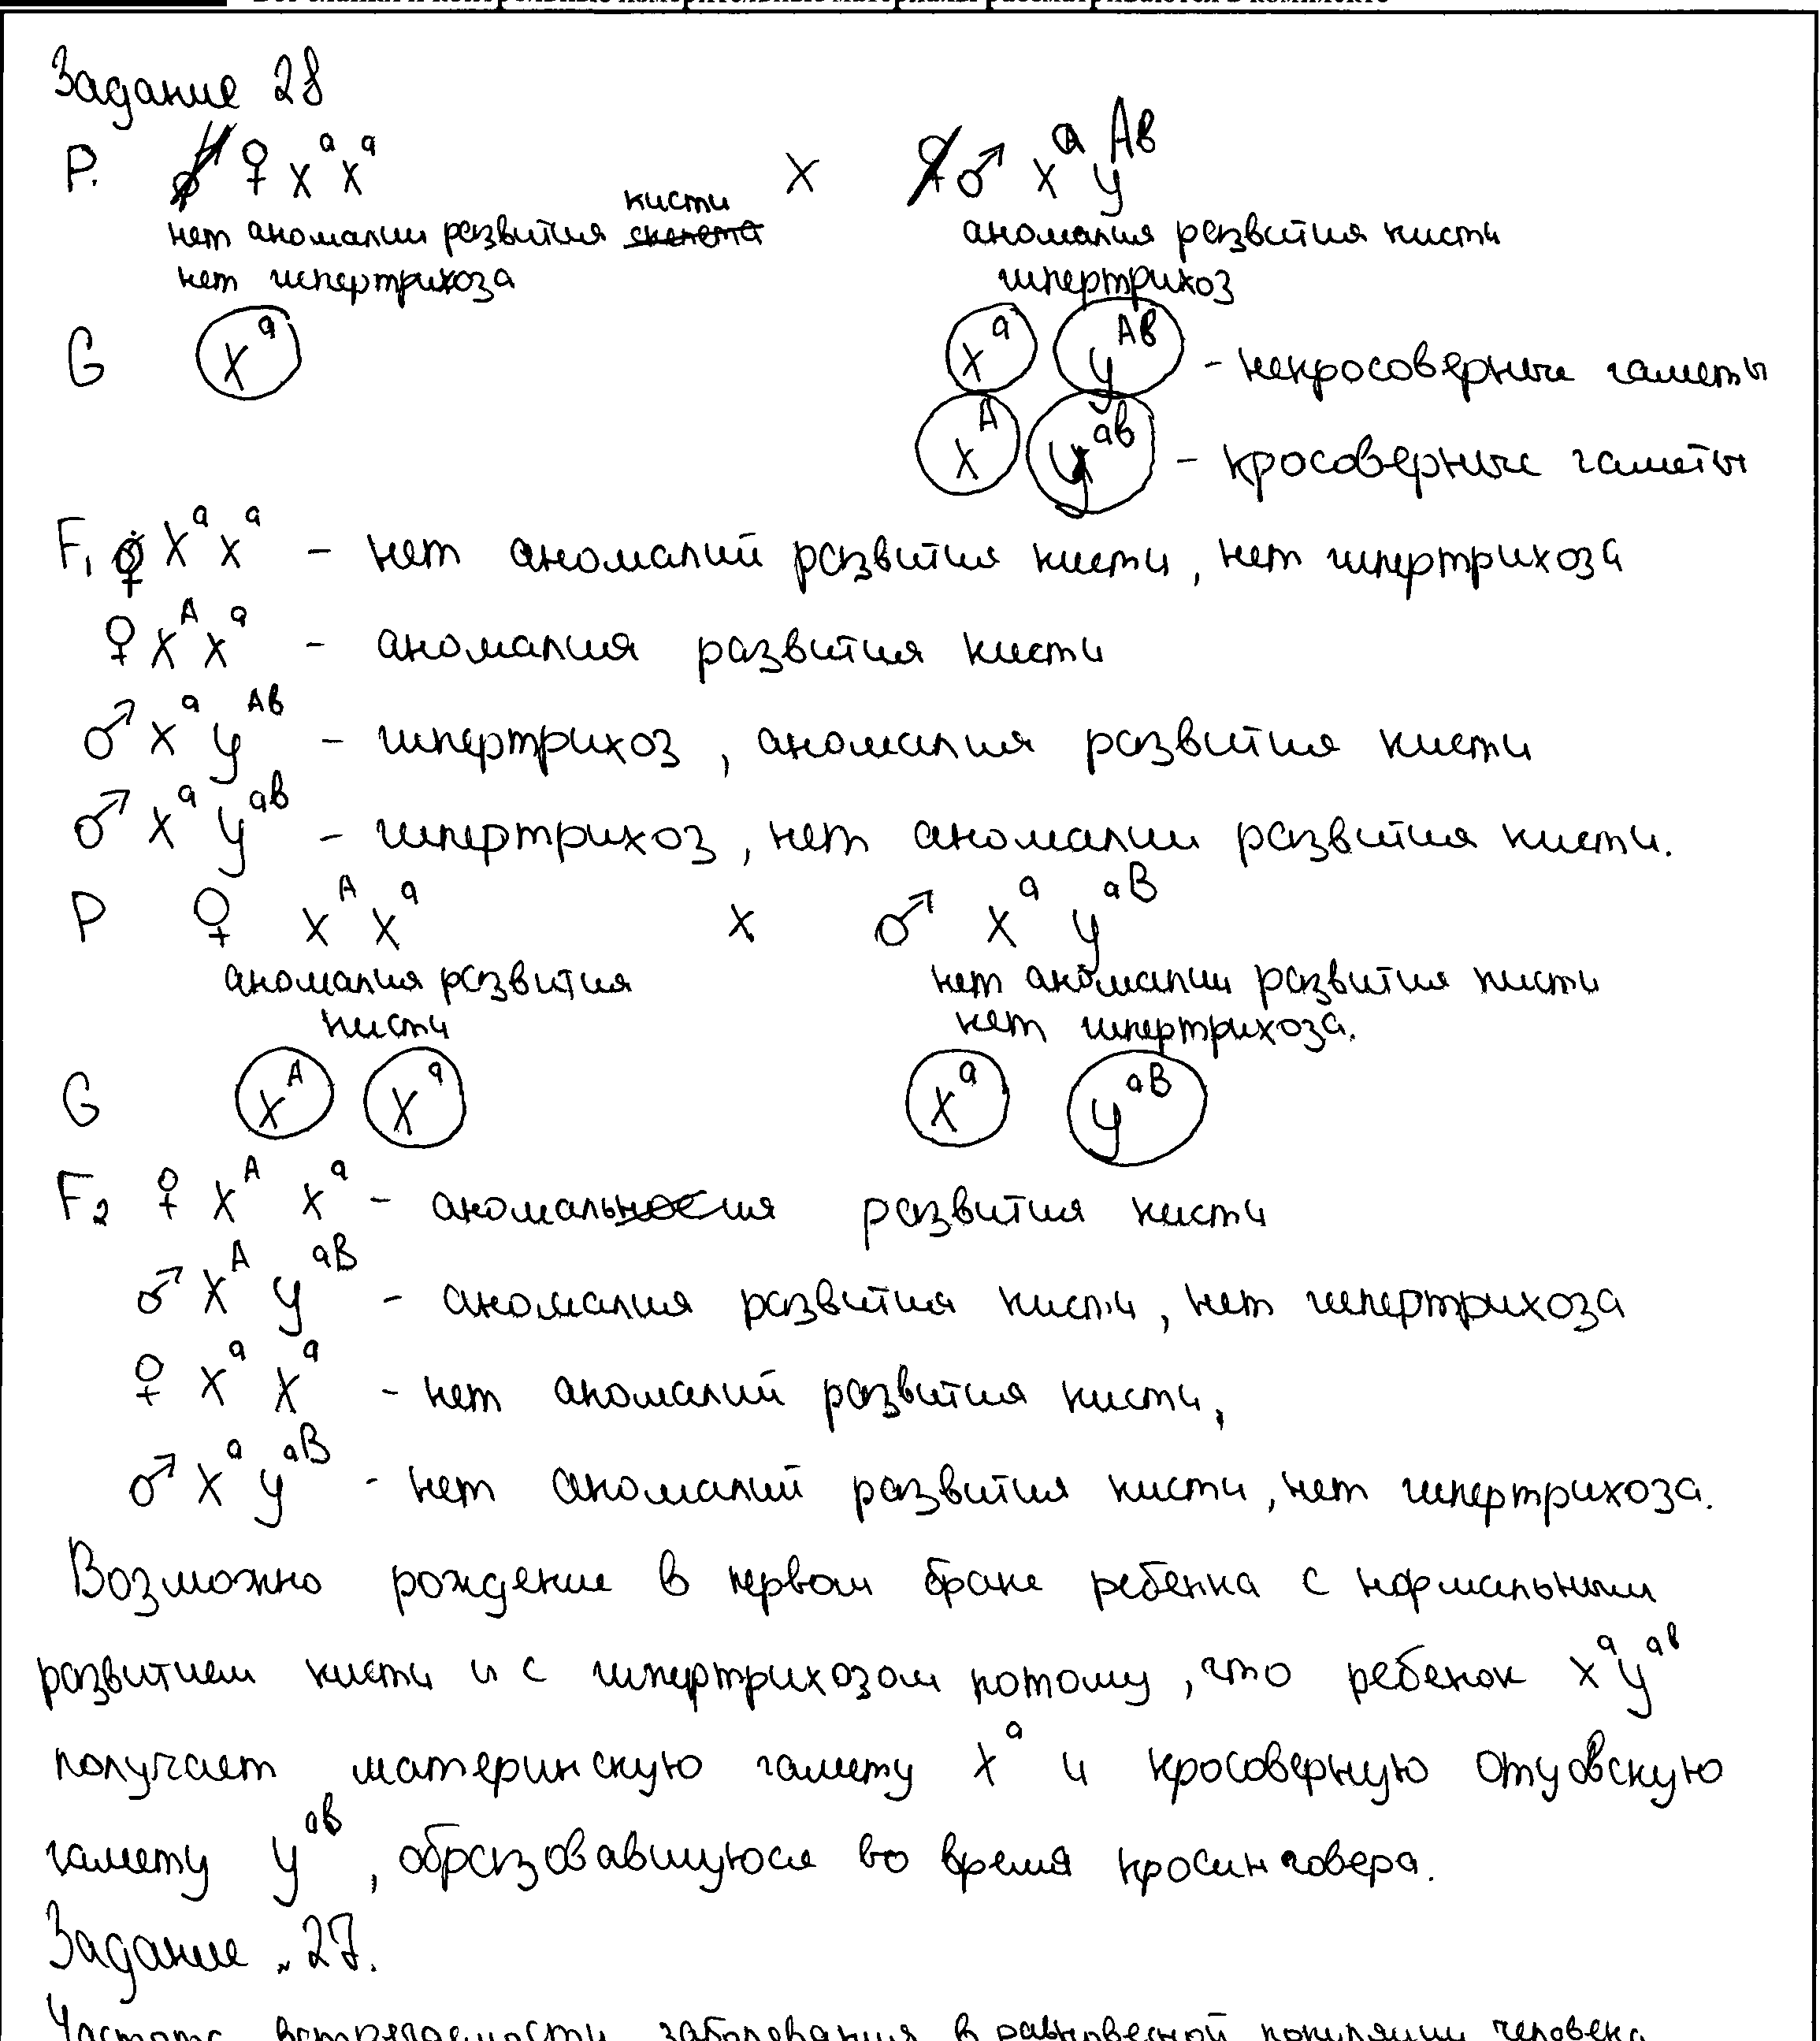 Все бланки и контрольные измерительные материалы рассматриваются в комплекте
Задание 28
P. ♀ X^a X^a x ♂ X^a y^Aв
нет аномалии развития кисти аномалия развития кисти
нет гипертрихоза гипертрихоз
G X^a X^a y^Aв - некросоверные гаметы
X^A y^aв - кросоверные гаметы
F₁ ♀ X^a X^a - нет аномалий развития кисти, нет гипертрихоза
♀ X^A X^a - аномалия развития кисти
♂ X^a y^Aв - гипертрихоз, аномалия развития кисти
♂ X^a y^aв - гипертрихоз, нет аномалии развития кисти.
P ♀ X^A X^a x ♂ X^a y^aB
аномалия развития нет аномалии развития кисти
кисти нет гипертрихоза.
G X^A X^a X^a y^aB
F₂ ♀ X^A X^a - аномалия развития кисти
♂ X^A y^aB - аномалия развития кисти, нет гипертрихоза
♀ X^a X^a - нет аномалий развития кисти,
♂ X^a y^aB - нет аномалий развития кисти, нет гипертрихоза.
Возможно рождение в первом браке ребенка с нормальным
развитием кисти и с гипертрихозом потому, что ребенок X^a y^aв
получает материнскую гамету X^a и кросоверную отцовскую
гамету y^aв, образовавшуюся во время кросинговера.
Задание 27.
Частота встречаемости заболевания в равновесной популяции человека